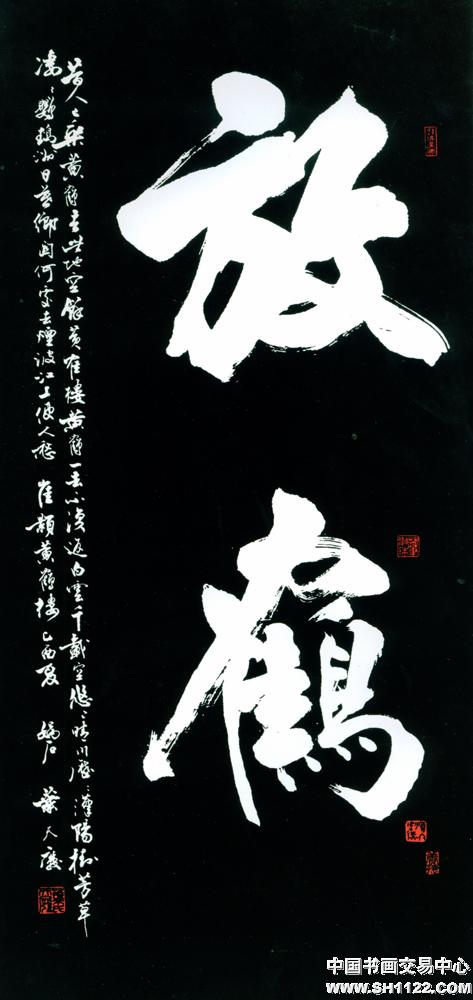 放鶴
昔人已乘黄鶴去此地空餘黄鶴樓黄鶴一去不復返白雲千載空悠〻晴川歷〻漢陽樹芳草
凄〻鸚鵡洲日暮鄉関何處去煙波江上使人愁 崔顥黄鶴樓 乙酉夏 葉天
中国书画交易中心
www.SH1122.COM